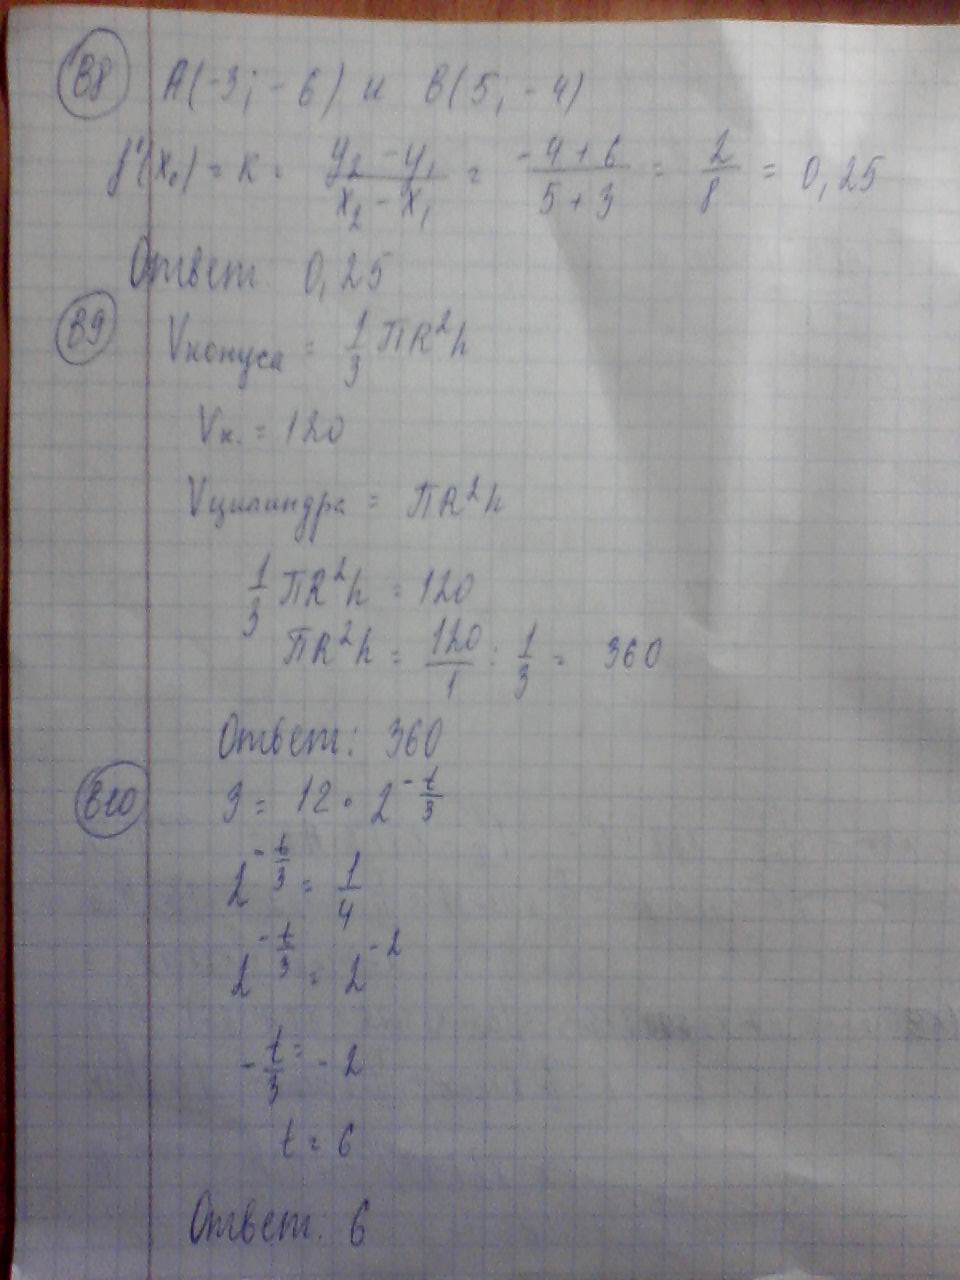 В8 A(-3; -6) и B(5; -4)
f'(x₀) = к = \frac{y₂ - y₁}{x₂ - x₁} = \frac{-4+6}{5+3} = \frac{2}{8} = 0,25
Ответ 0,25
В9 Vконуса = \frac{1}{3} ПR²h
Vк. = 120
Vцилиндра = ПR²h
\frac{1}{3} ПR²h = 120
ПR²h = \frac{120}{1} : \frac{1}{3} = 360
Ответ: 360
В10 3 = 12 · 2^{-\frac{t}{3}}
2^{-\frac{t}{3}} = \frac{1}{4}
2^{-\frac{t}{3}} = 2^{-2}
-\frac{t}{3} = -2
t = 6
Ответ: 6